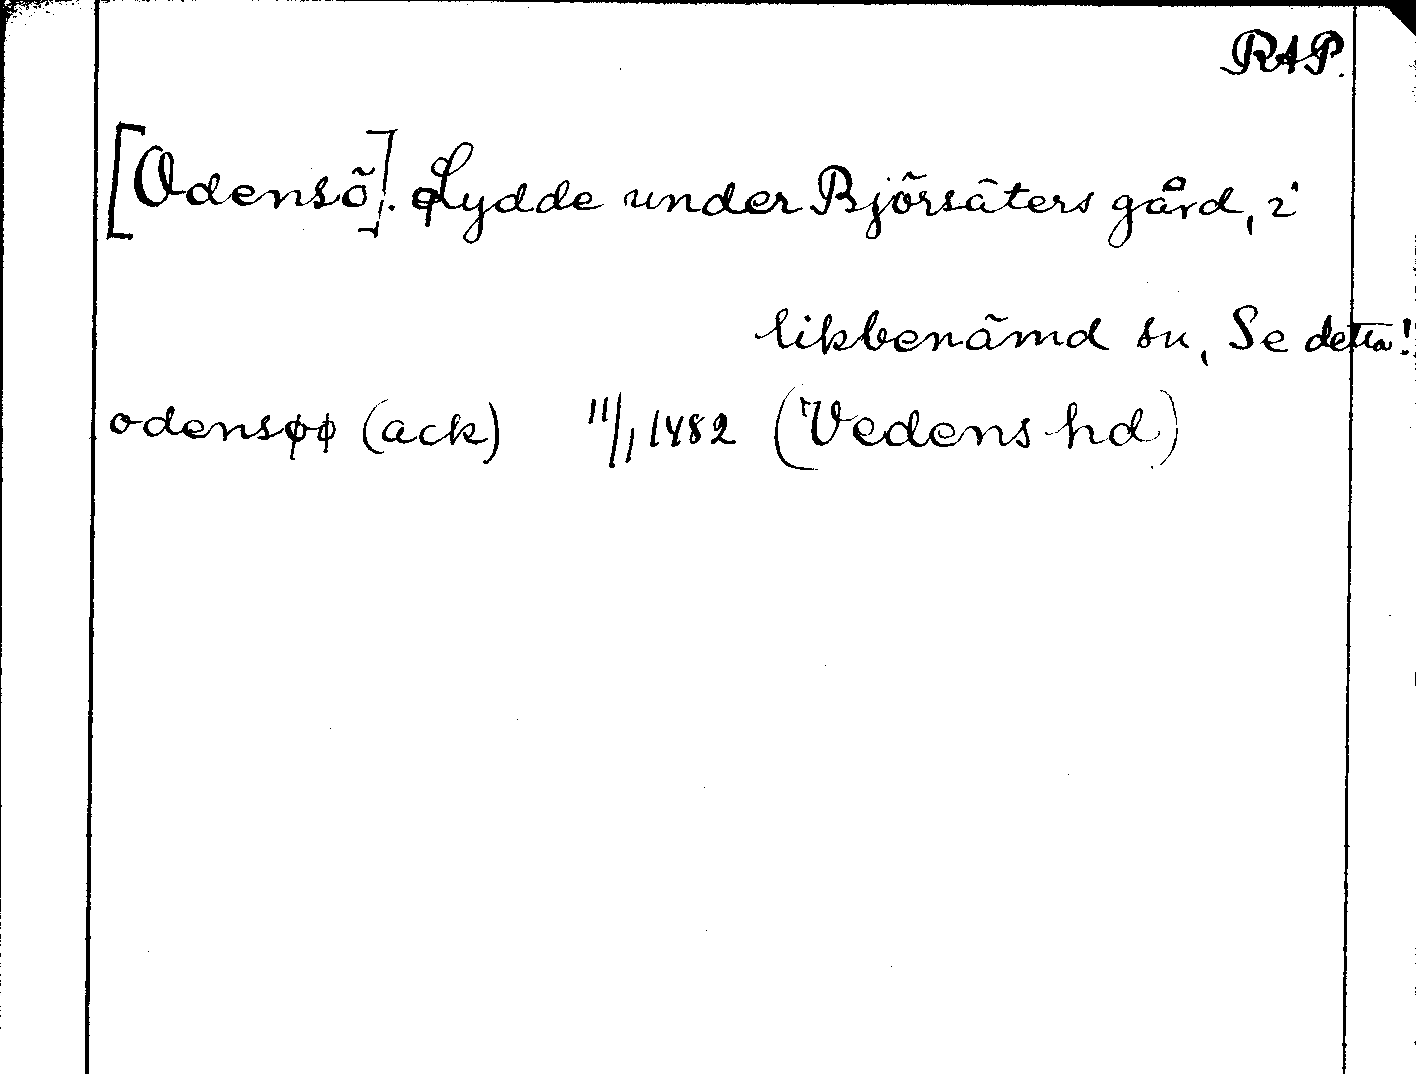 RAP.
[Odensö]. Lydde under Björsäters gård, i
likbenämd sn, Se detta!
odensøø (ack) 11/1 1482 (Vedens hd)